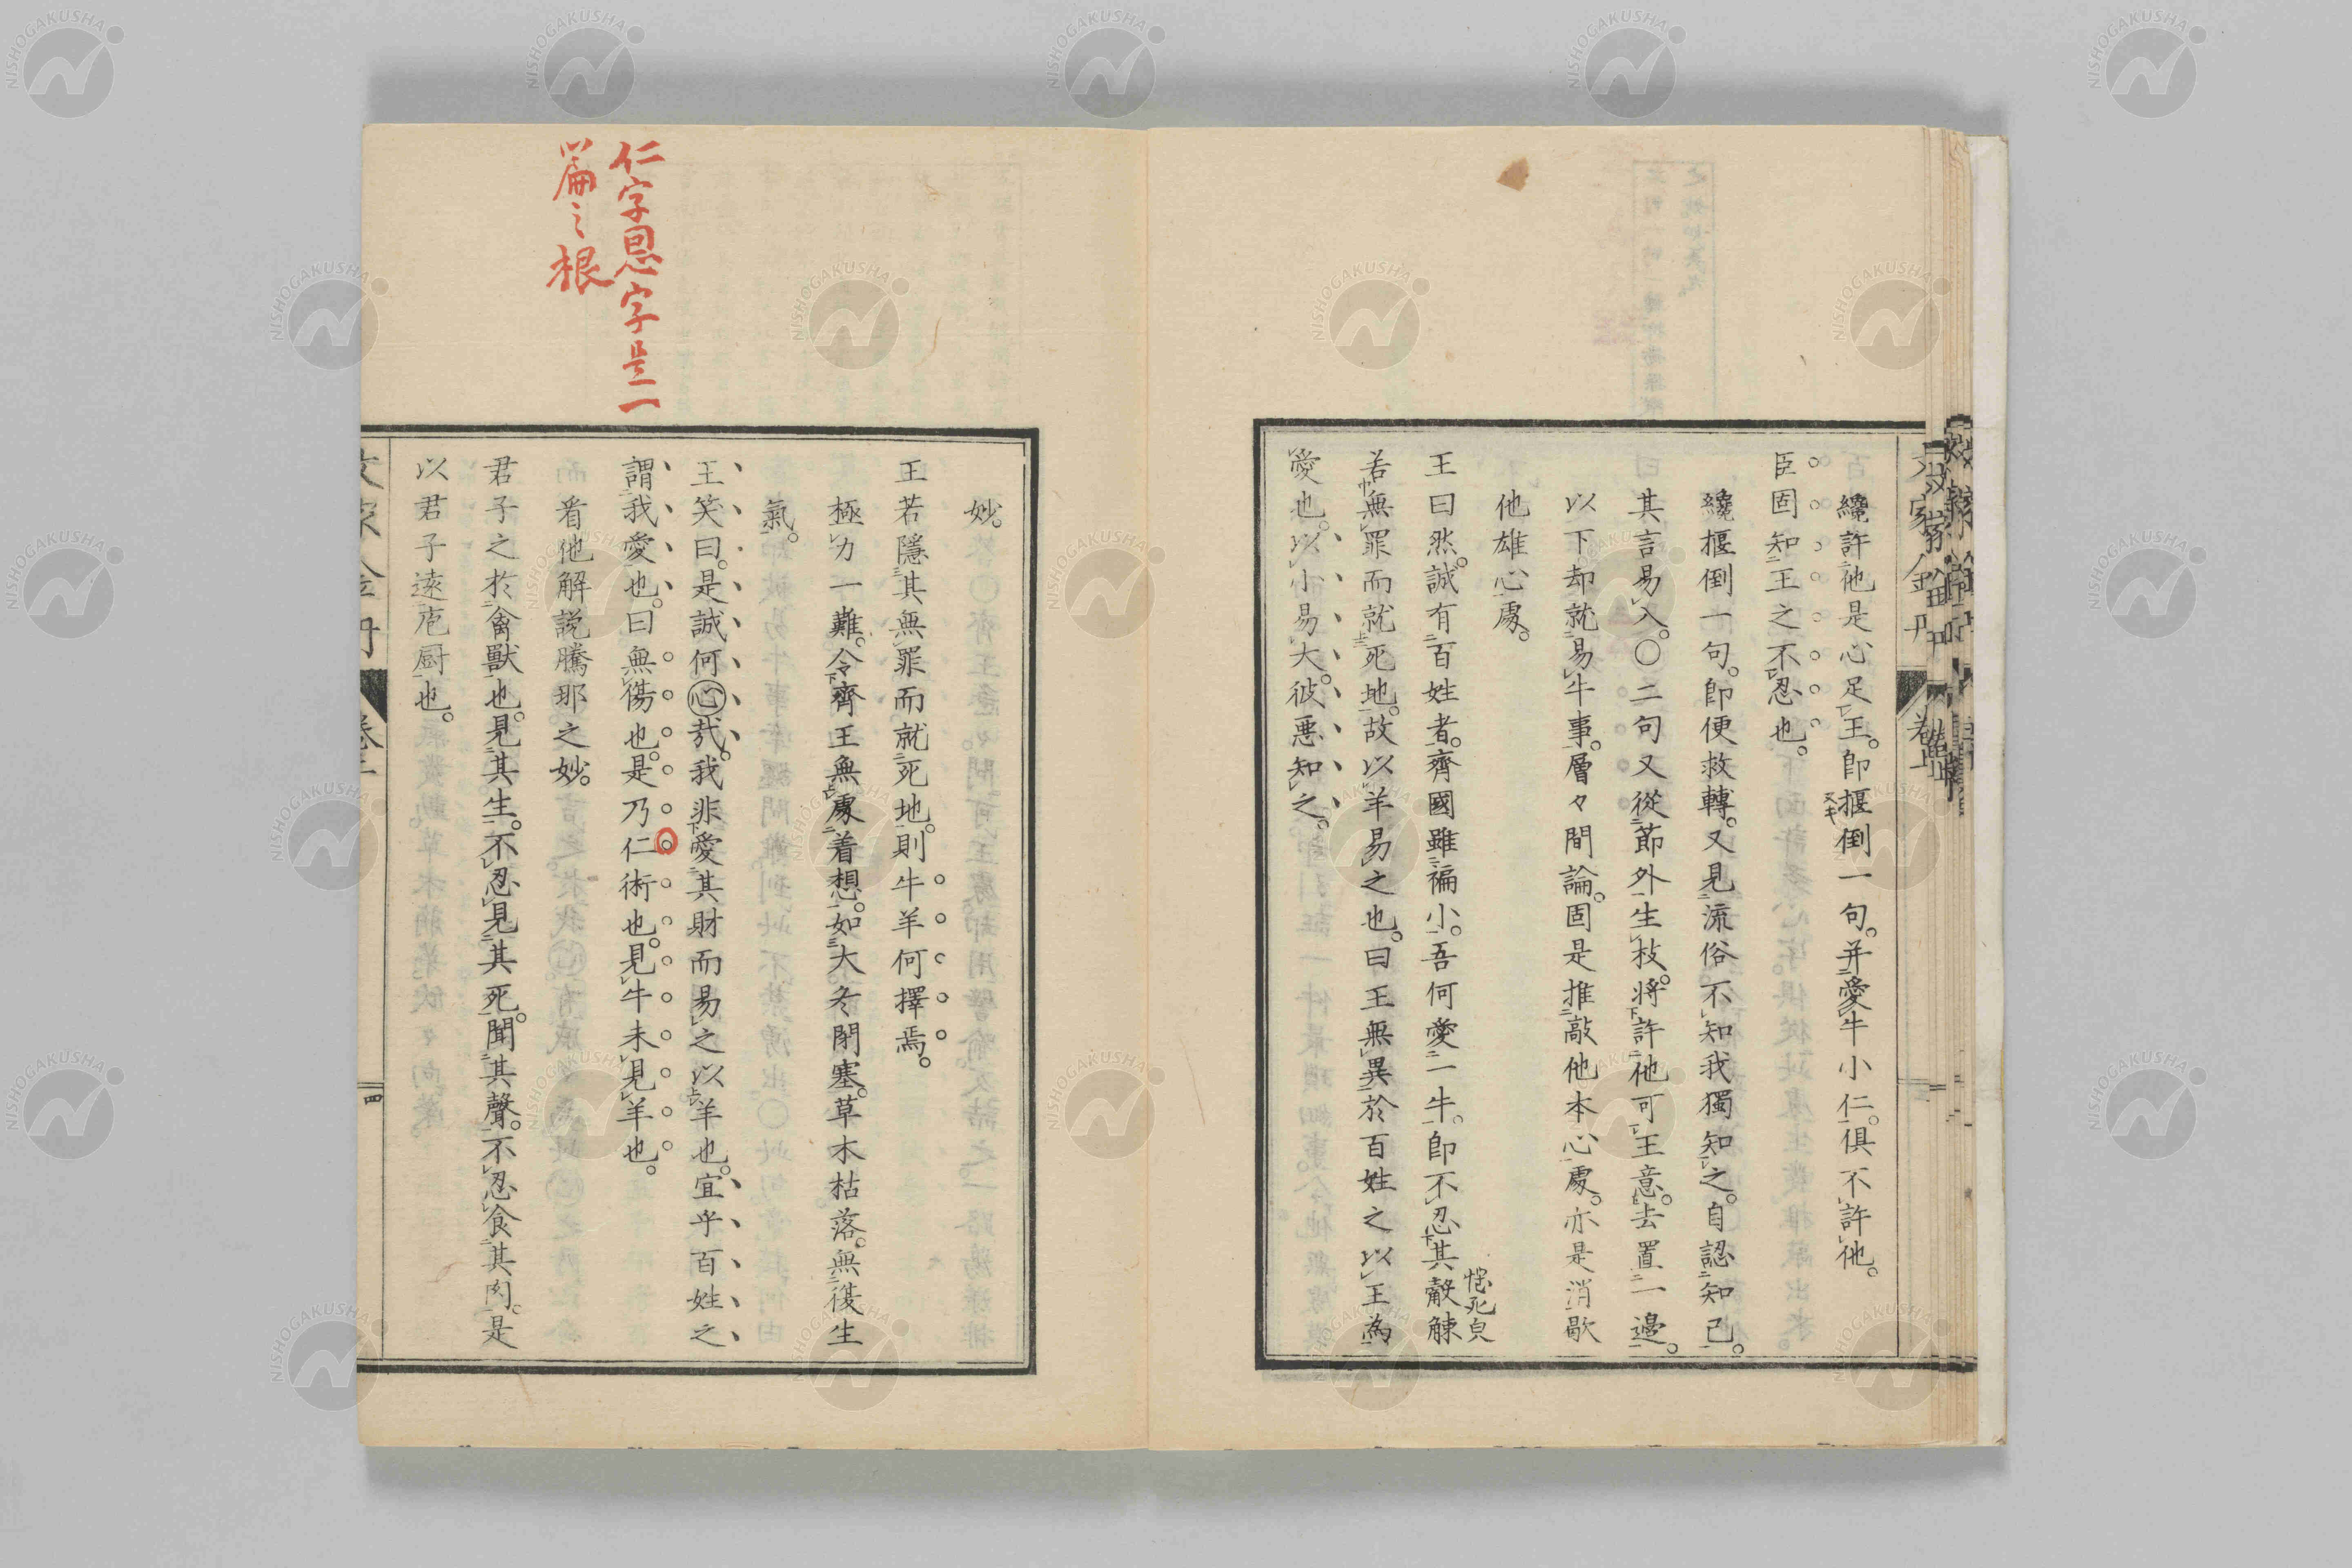 纔許他是心足王。即揠倒一句。并愛牛小仁。俱不許他。
臣固知王之不忍也。
纔揠倒一句。即便救轉。又見流俗不知我獨知之。自認知己。
其言易入。〇二句又從節外生枝。將許他可王意。去置一邊。
以下却就易牛事。層々間論。固是推敲他本心處。亦是消歇
他雄心處。
王曰然。誠有百姓者。齊國雖褊小。吾何愛一牛。即不忍其觳觫
恇死皃
若無罪而就死地。故以羊易之也。曰王無異於百姓之以王為
愛也。以小易大。彼惡知之。
妙。
王若隱其無罪而就死地。則牛羊何擇焉。
極力一難。令齊王無處着想。如大冬閉塞。草木枯落。無復生
氣。
王笑曰。是誠何心哉。我非愛其財而易之以羊也。宜乎百姓之
謂我愛也。曰無傷也。是乃仁術也。見牛未見羊也。
看他解説騰那之妙。
君子之於禽獸也。見其生。不忍見其死。聞其聲。不忍食其肉。是
以君子遠庖厨也。
仁字恩字是一
篇之根
卷上
四
NISHOGAKUSHA